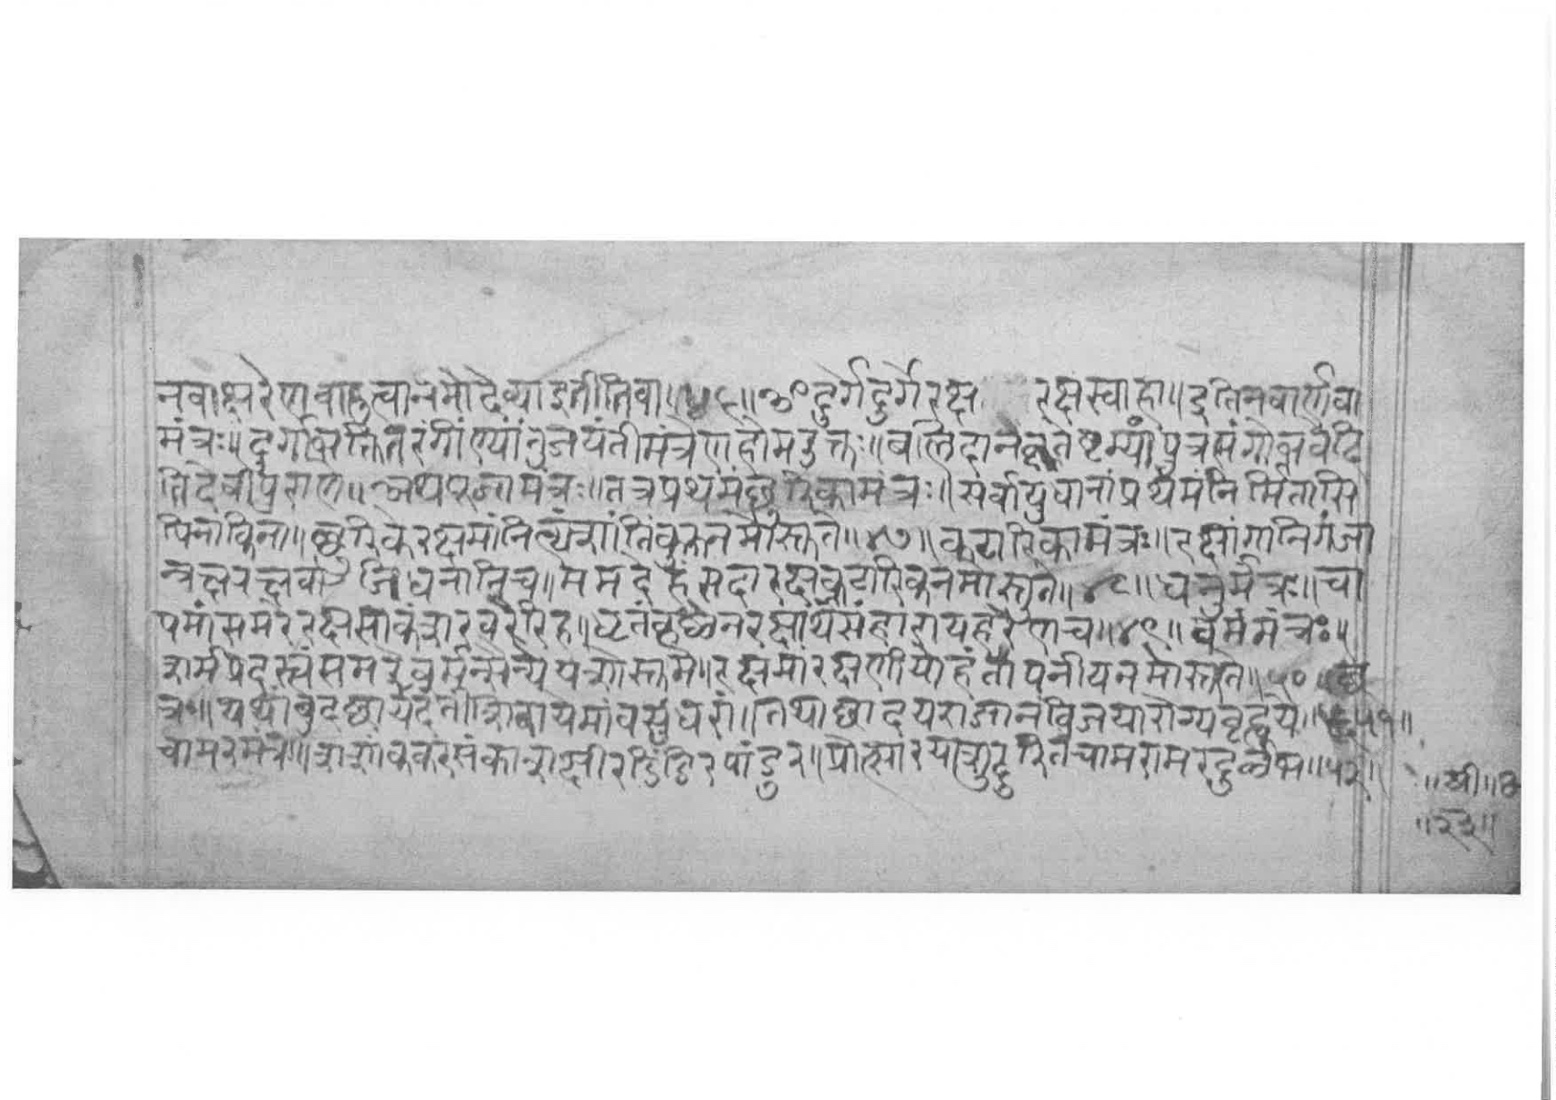 नवाक्षरेण वाहुत्वा नमो देव्या इतीतिवा॥४६॥ॐ दुर्गे दुर्गे रक्ष रक्ष स्वाहा॥इति नवार्ण वा
मंत्रः॥दुर्गाभक्तितरंगीण्यां तु जयंतीमंत्रेण होम उक्तः॥बलिदाने कृते ष्टम्यां पुत्र
तिदेवीपुराण॥अथ पूजामंत्रः॥तत्र प्रथमं छुरिकामंत्रः॥सर्वायुधानां प्रथमं निर्मितासि
पिनाकिना॥छुरिके रक्ष मां नित्यं शांतिं कुरु नमोस्तुते॥४७॥कटारिकामंत्रः॥रक्षांगानि गजा
धनानि च॥मम देहं सदा रक्ष कटारिके नमोस्तुते॥४८॥धनुर्मंत्रः॥चा
प मां समरे रक्ष साकं शरवरैरिह॥धृतं कृष्णेन रक्षार्थं संहाराय हरेण च॥४९॥वर्म मंत्रः॥
शर्मप्रदस्त्वं समरे वर्मन्सैन्ये यशोस्तु मे॥रक्ष मां रक्षणीयोहं तापनीय नमोस्तुते॥५०॥छ
त्रः॥यथांबुदछायदते शिवायेमां वसुंधरां॥तथा छादय राजानं विजयारोग्यवृद्धये॥५१॥
चामरमंत्रः॥शशांककरसंकाश क्षीरडिंडिरपांडुर॥प्रोत्सारयाशु दुरितं चामरामरदुर्लभ॥५२॥
॥श्री॥
॥२३॥